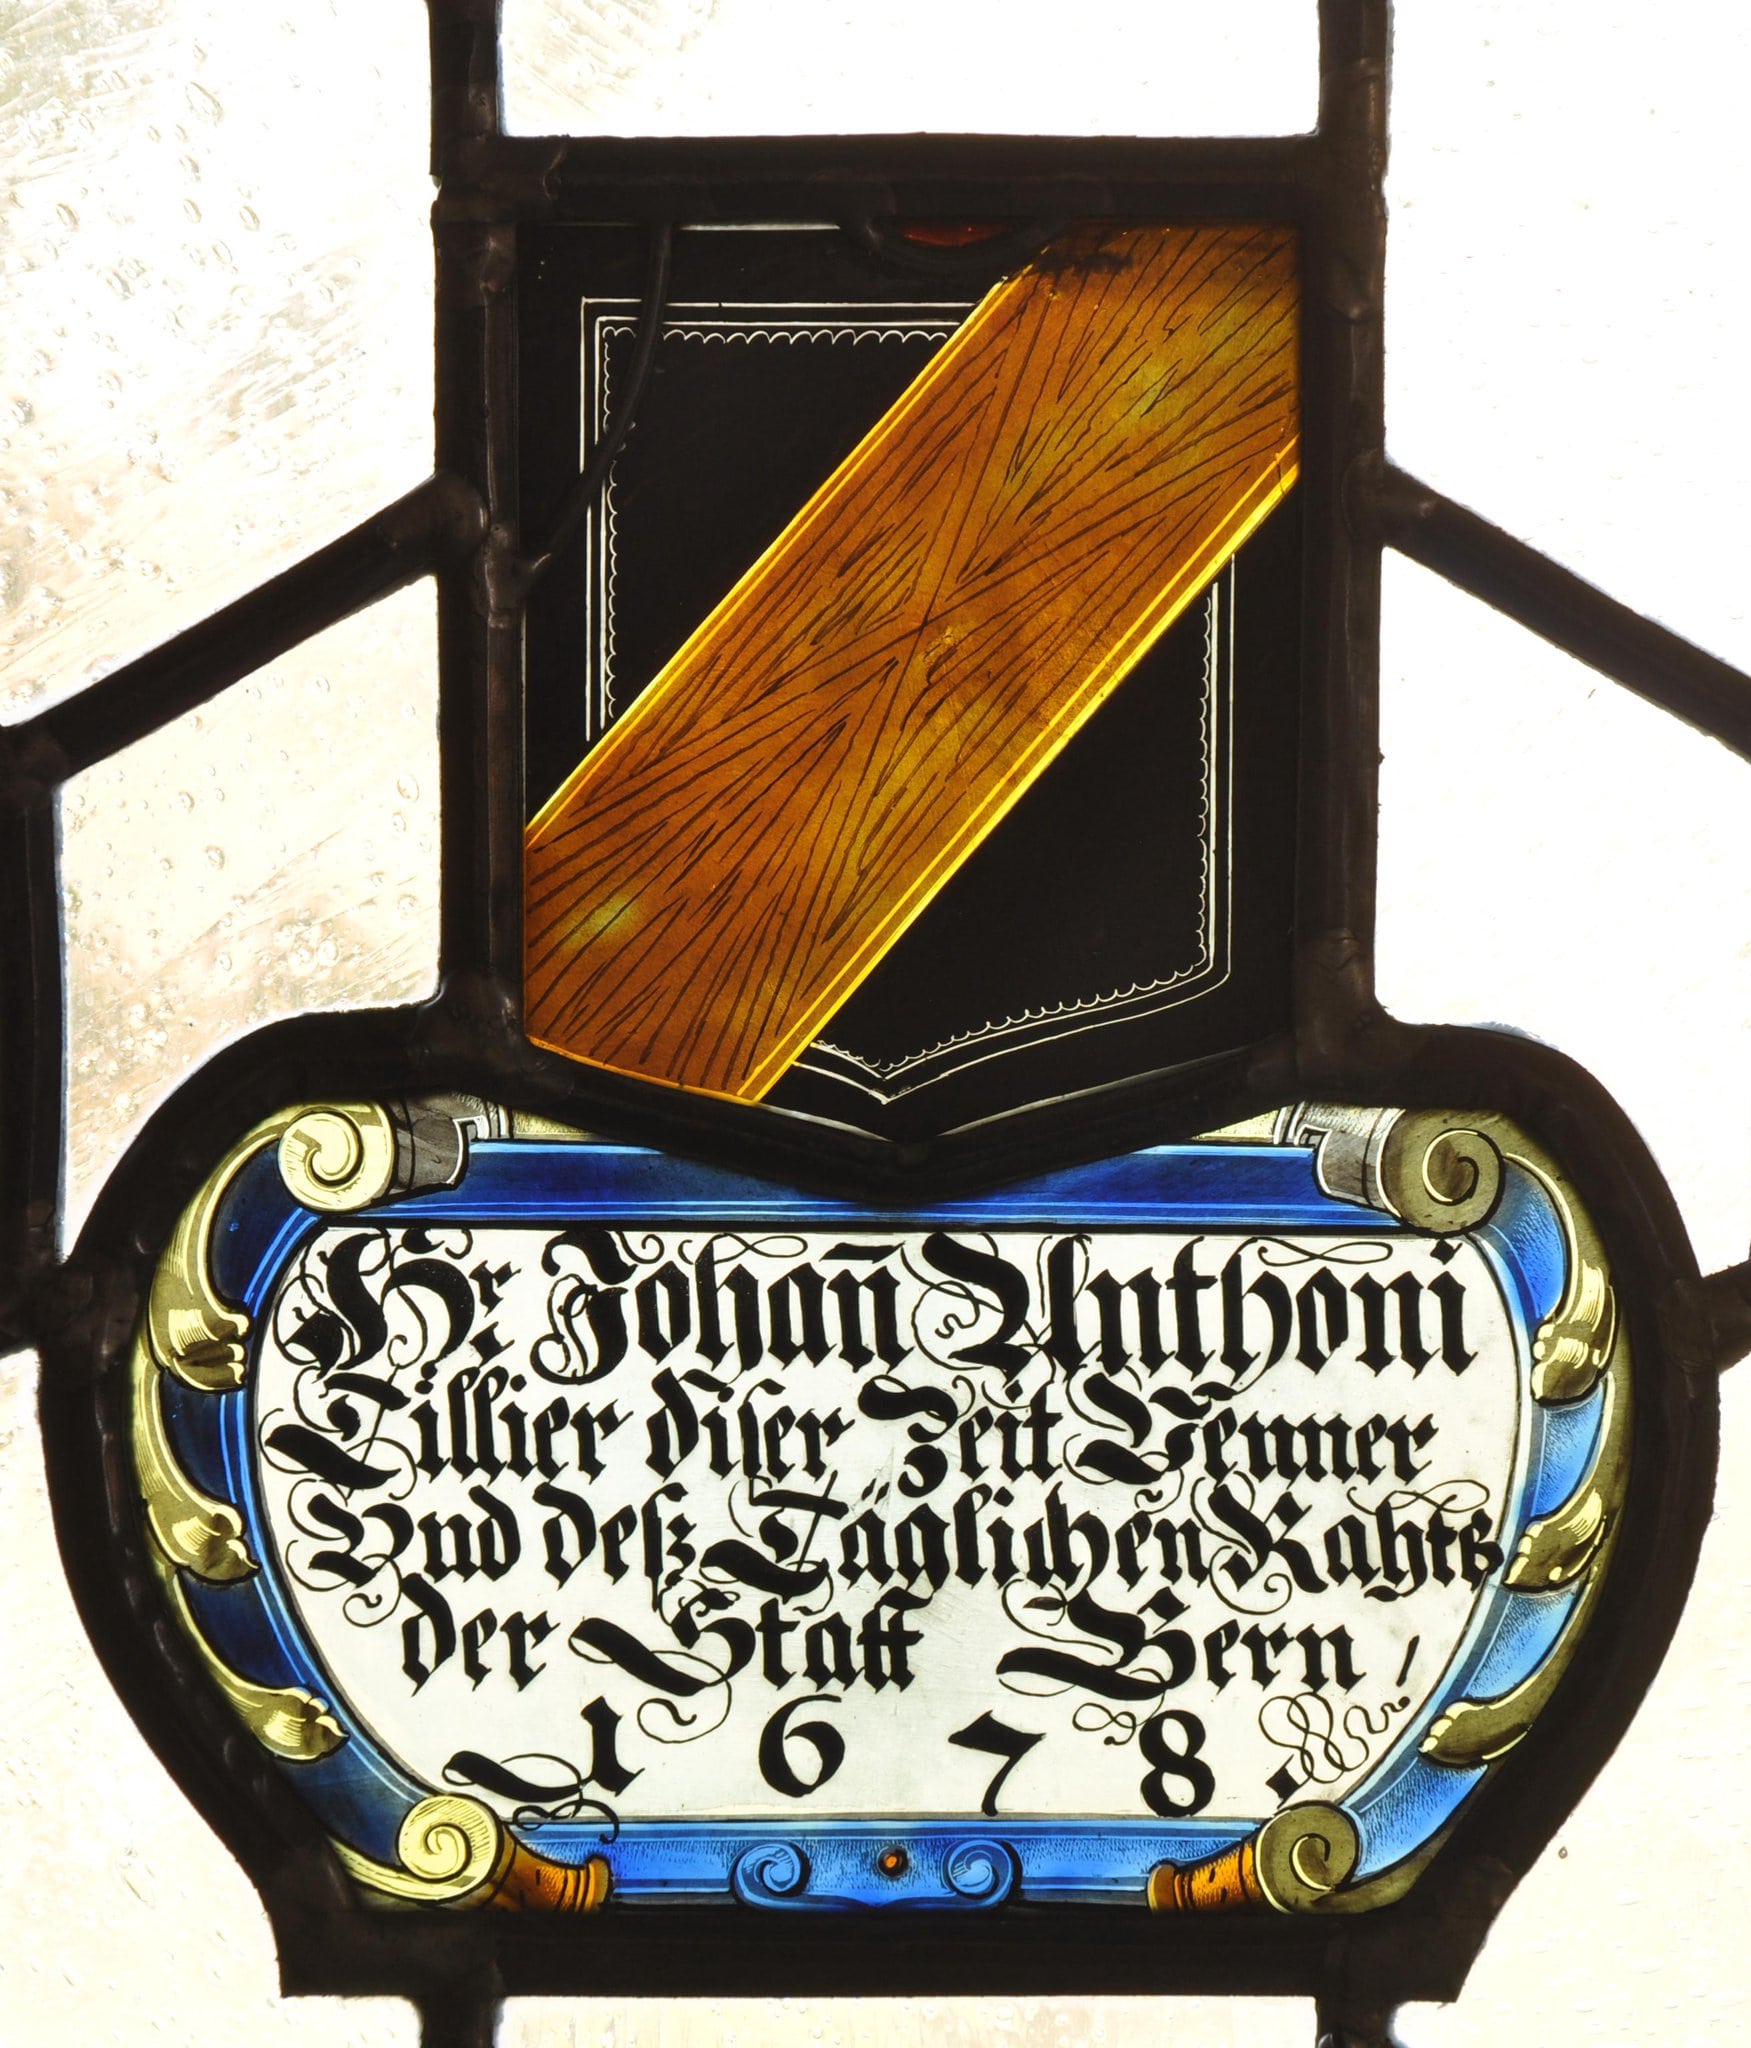 Hr. Johan̄ Anthoni
Tillier diser Zeit Venner
Vnd deß Täglichen Rahts
der Statt Bern /
1678.